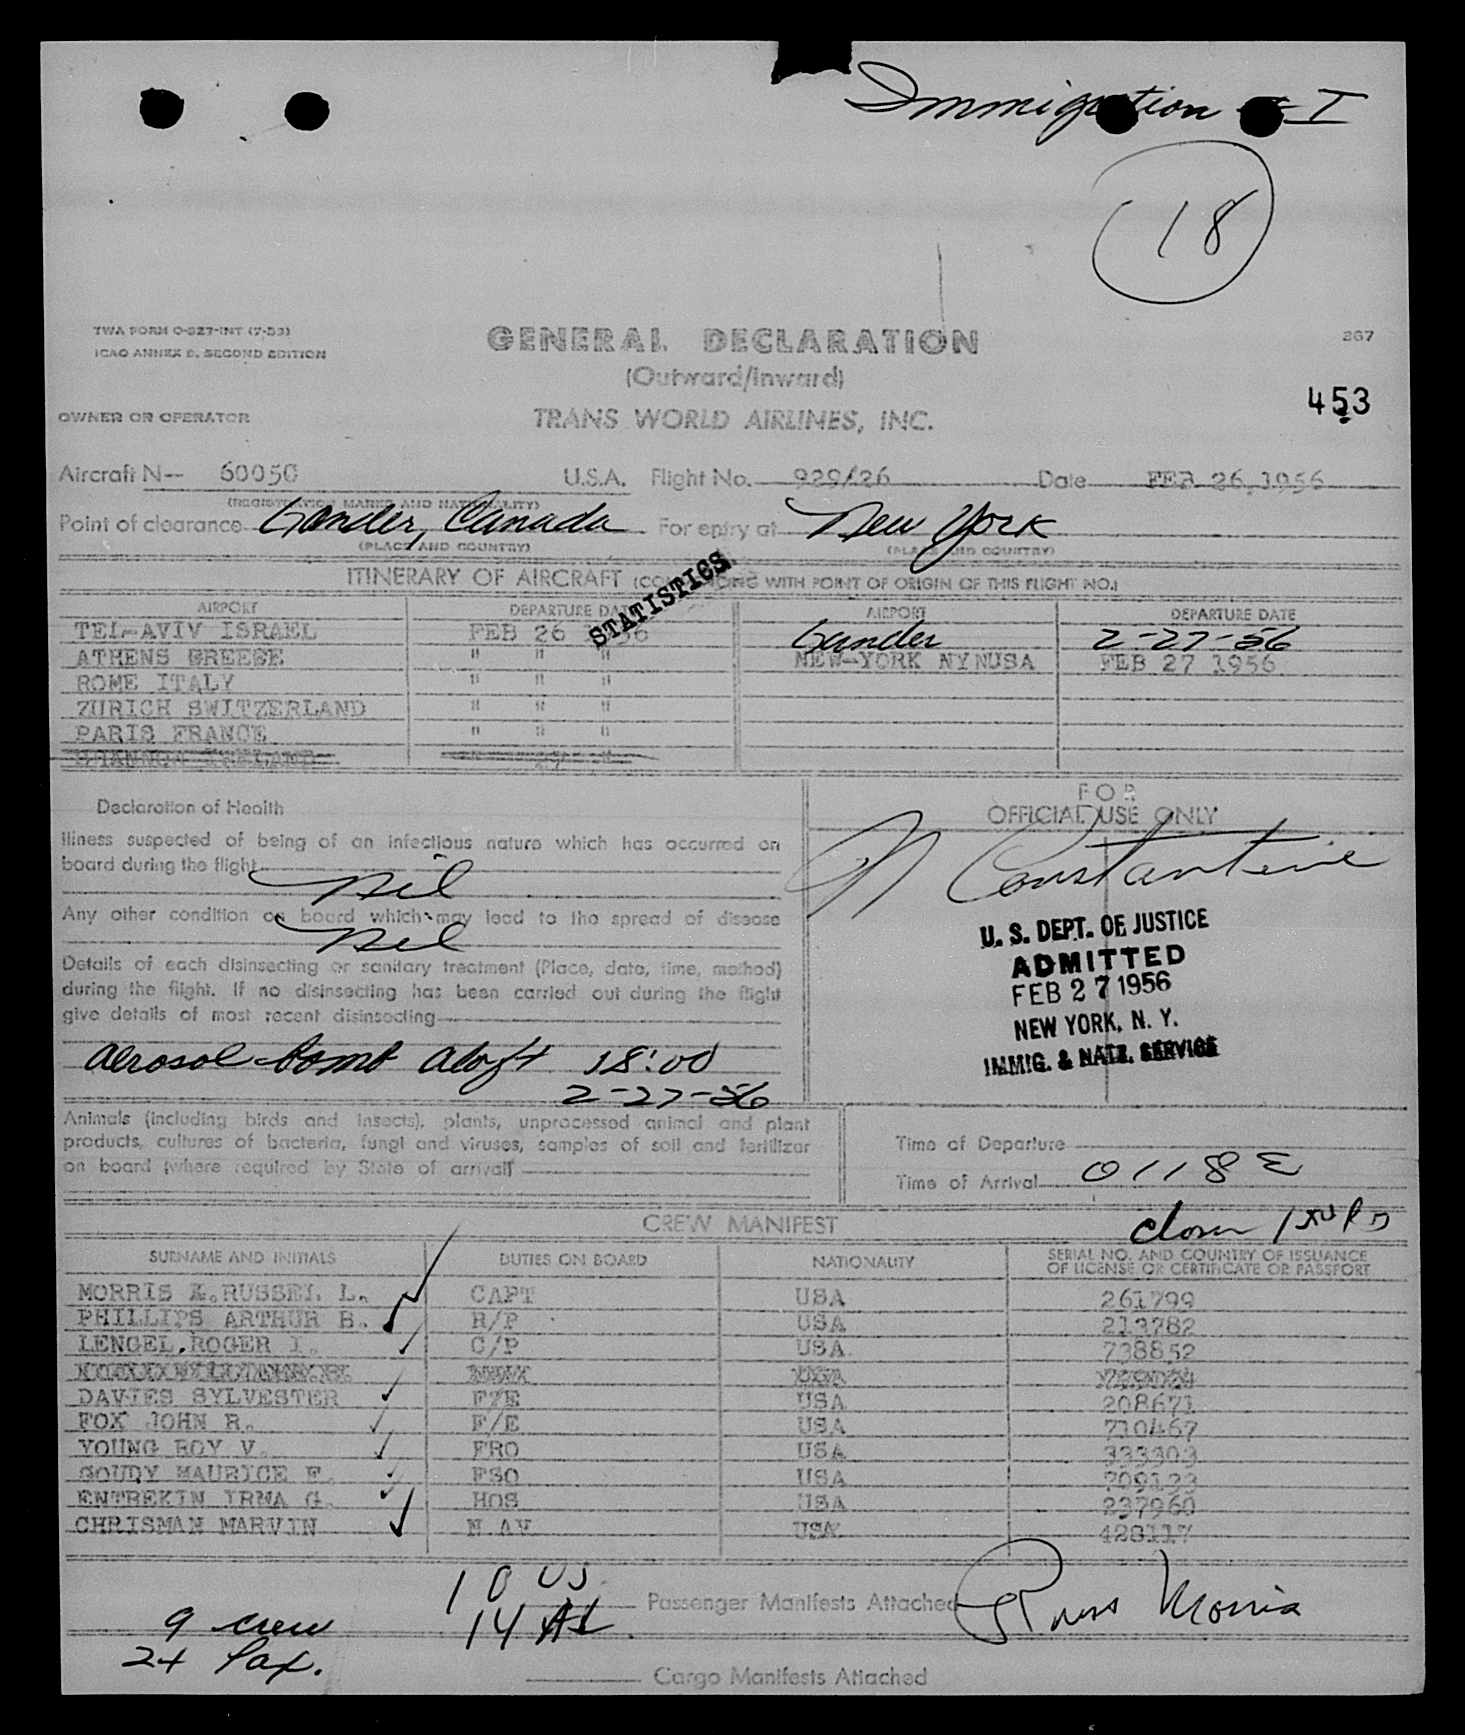 Immigration - I
18
TWA FORM O-827-INT (7-53)
ICAO ANNEX 9, SECOND EDITION
GENERAL DECLARATION
(Outward/Inward)
267
453
OWNER OR OPERATOR
TRANS WORLD AIRLINES, INC.
Aircraft N-- 6005C U.S.A. Flight No. 929/26 Date FEB 26,1956
(REGISTRATION MARKS AND NATIONALITY)
Point of clearance Gander, Canada For entry at New York
(PLACE AND COUNTRY) (PLACE AND COUNTRY)
STATISTICS
ITINERARY OF AIRCRAFT (COMMENCING WITH POINT OF ORIGIN OF THIS FLIGHT NO.)
AIRPORT DEPARTURE DATE AIRPORT DEPARTURE DATE
TEL-AVIV ISRAEL FEB 26 1956 Gander 2-27-56
ATHENS GREESE " " " NEW-YORK NYNUSA FEB 27 1956
ROME ITALY " " "
ZURICH SWITZERLAND " " "
PARIS FRANCE " " "
SHANNON IRELAND " 27 "
Declaration of Health
FOR
OFFICIAL USE ONLY
Illness suspected of being of an infectious nature which has occurred on
board during the flight Nil
N Constantine
Any other condition on board which may lead to the spread of disease
Nil
U. S. DEPT. OF JUSTICE
ADMITTED
FEB 27 1956
NEW YORK, N. Y.
IMMIG. & NATZ. SERVICE
Details of each disinsecting or sanitary treatment (Place, date, time, method)
during the flight. If no disinsecting has been carried out during the flight
give details of most recent disinsecting
Aerosol bomb aloft 18:00
2-27-56
Animals (including birds and insects), plants, unprocessed animal and plant
products, cultures of bacteria, fungi and viruses, samples of soil and fertilizer
on board (where required by State of arrival)
Time of Departure
Time of Arrival 0118 E
CREW MANIFEST
SURNAME AND INITIALS DUTIES ON BOARD NATIONALITY SERIAL NO. AND COUNTRY OF ISSUANCE
OF LICENSE OR CERTIFICATE OR PASSPORT
MORRIS RUSSEL L. CAPT USA 261799
PHILLIPS ARTHUR B. R/P USA 213782
LENGEL,ROGER I. C/P USA 738852
DAVIES SYLVESTER F/E USA 208671
FOX JOHN R. F/E USA 710467
YOUNG ROY V. FRO USA 333303
GOUDY MAURICE F. FSO USA 209133
ENTREKIN IRMA G. HOS USA 237960
CHRISMAN MARVIN NAV USA 428117
10 US
14 AL
Passenger Manifests Attached
Russ Morris
9 crew
24 Pax.
Cargo Manifests Attached